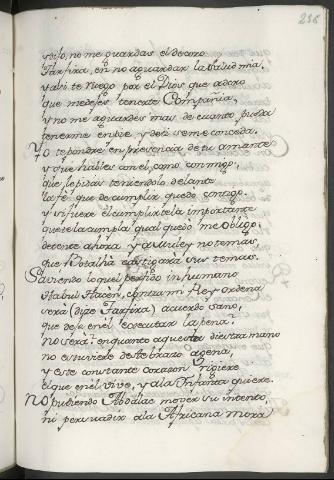 y dijo, no me guardas el decoro
Jarfira, en no aguardar la salud mia,
y asi te Ruego por el Dios que adoro
que me dejes tenerte Compañia,
y no me aguardes mas de cuanto pueda
tenerme en pie, y deci se me conceda.
Yo te pondre en presencia de tu amante
y que hables con el, como conmigo,
que le pidas teniendolo delante
la fe que de cumplir quedo contigo.
y si fuere el cumplirtela importante
que te la cumpla qual quedo me obligo,
decente ahora y a Muley no temas,
que castigará sus temas.
Saviendo lo quel perfido inhumano
Hacén, contra mi Rey ordena
será (dize Jarfira) acuerdo sano,
que deje en el executar la pena?
no será: enquanto aquesta diestra mano
no estuviere de el brazo agena,
y este constante corazon rigiere
el que en el vive, y a la Infanta quiere.
No pudiendo Abdalac mover su intento,
ni persuadir a la Africana mora